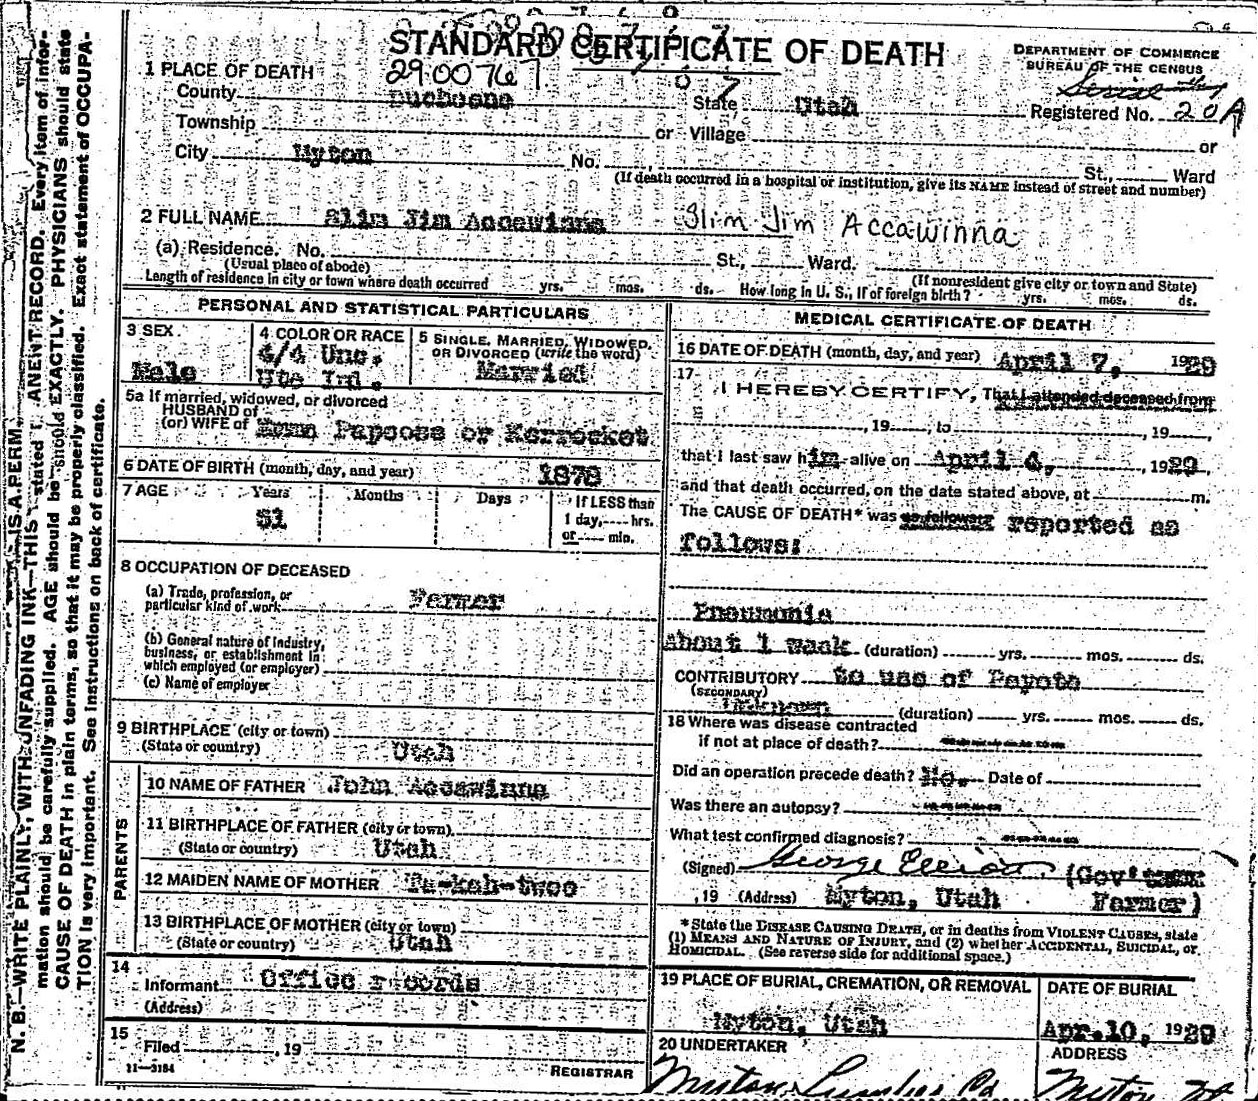 STANDARD CERTIFICATE OF DEATH
DEPARTMENT OF COMMERCE
BUREAU OF THE CENSUS
1 PLACE OF DEATH
2900767
County Duchesne State Utah
Registered No. 20A
Township or Village or
City Myton No. St., Ward
(If death occurred in a hospital or institution, give its NAME instead of street and number)
2 FULL NAME Slim Jim Accawinna Slim Jim Accawinna
(a) Residence. No. St., Ward.
(Usual place of abode) (If nonresident give city or town and State)
Length of residence in city or town where death occurred yrs. mos. ds. How long in U. S., if of foreign birth? yrs. mos. ds.
PERSONAL AND STATISTICAL PARTICULARS
3 SEX
Male
4 COLOR OR RACE
4/4 Unc.
Ute Ind.
5 SINGLE, MARRIED, WIDOWED,
OR DIVORCED (write the word)
Married
5a If married, widowed, or divorced
HUSBAND of
(or) WIFE of Papoose or Korrocket
6 DATE OF BIRTH (month, day, and year) 1878
7 AGE Years Months Days If LESS than
51 1 day, hrs.
or min.
8 OCCUPATION OF DECEASED
(a) Trade, profession, or
particular kind of work Farmer
(b) General nature of industry,
business, or establishment in
which employed (or employer)
(c) Name of employer
9 BIRTHPLACE (city or town)
(State or country) Utah
PARENTS
10 NAME OF FATHER John Accawinna
11 BIRTHPLACE OF FATHER (city or town)
(State or country) Utah
12 MAIDEN NAME OF MOTHER Ta-kah-twoo
13 BIRTHPLACE OF MOTHER (city or town)
(State or country) Utah
14
Informant Office records
(Address)
15
Filed , 19
REGISTRAR
11—3184
MEDICAL CERTIFICATE OF DEATH
16 DATE OF DEATH (month, day, and year) April 7, 1929
17
I HEREBY CERTIFY, That I attended deceased from
, 19 , to , 19 ,
that I last saw him alive on April 4, 1929,
and that death occurred, on the date stated above, at m.
The CAUSE OF DEATH* was as follows: reported as
follows:
Pneumonia
About 1 week (duration) yrs. mos. ds.
CONTRIBUTORY to use of Peyote
(SECONDARY)
Unknown (duration) yrs. mos. ds.
18 Where was disease contracted
if not at place of death?
Did an operation precede death? No. Date of
Was there an autopsy?
What test confirmed diagnosis?
(Signed) George Elliott (Gov't
, 19 (Address) Myton, Utah Farmer)
*State the DISEASE CAUSING DEATH, or in deaths from VIOLENT CAUSES, state
(1) MEANS AND NATURE OF INJURY, and (2) whether ACCIDENTAL, SUICIDAL, or
HOMICIDAL. (See reverse side for additional space.)
19 PLACE OF BURIAL, CREMATION, OR REMOVAL
Myton, Utah
DATE OF BURIAL
Apr. 10, 1929
20 UNDERTAKER
Myton Lumber Co
ADDRESS
Myton Ut
N. B.—WRITE PLAINLY, WITH UNFADING INK—THIS IS A PERMANENT RECORD. Every item of infor-
mation should be carefully supplied. AGE should be stated EXACTLY. PHYSICIANS should state
CAUSE OF DEATH in plain terms, so that it may be properly classified. Exact statement of OCCUPA-
TION is very important. See instructions on back of certificate.